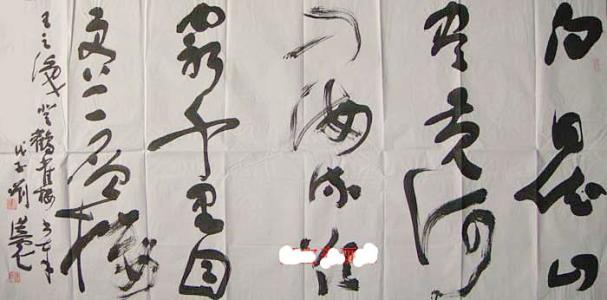 白日依山
尽黄河
入海流欲
穷千里目
更上一层楼
王之涣登鹳雀楼
戊子